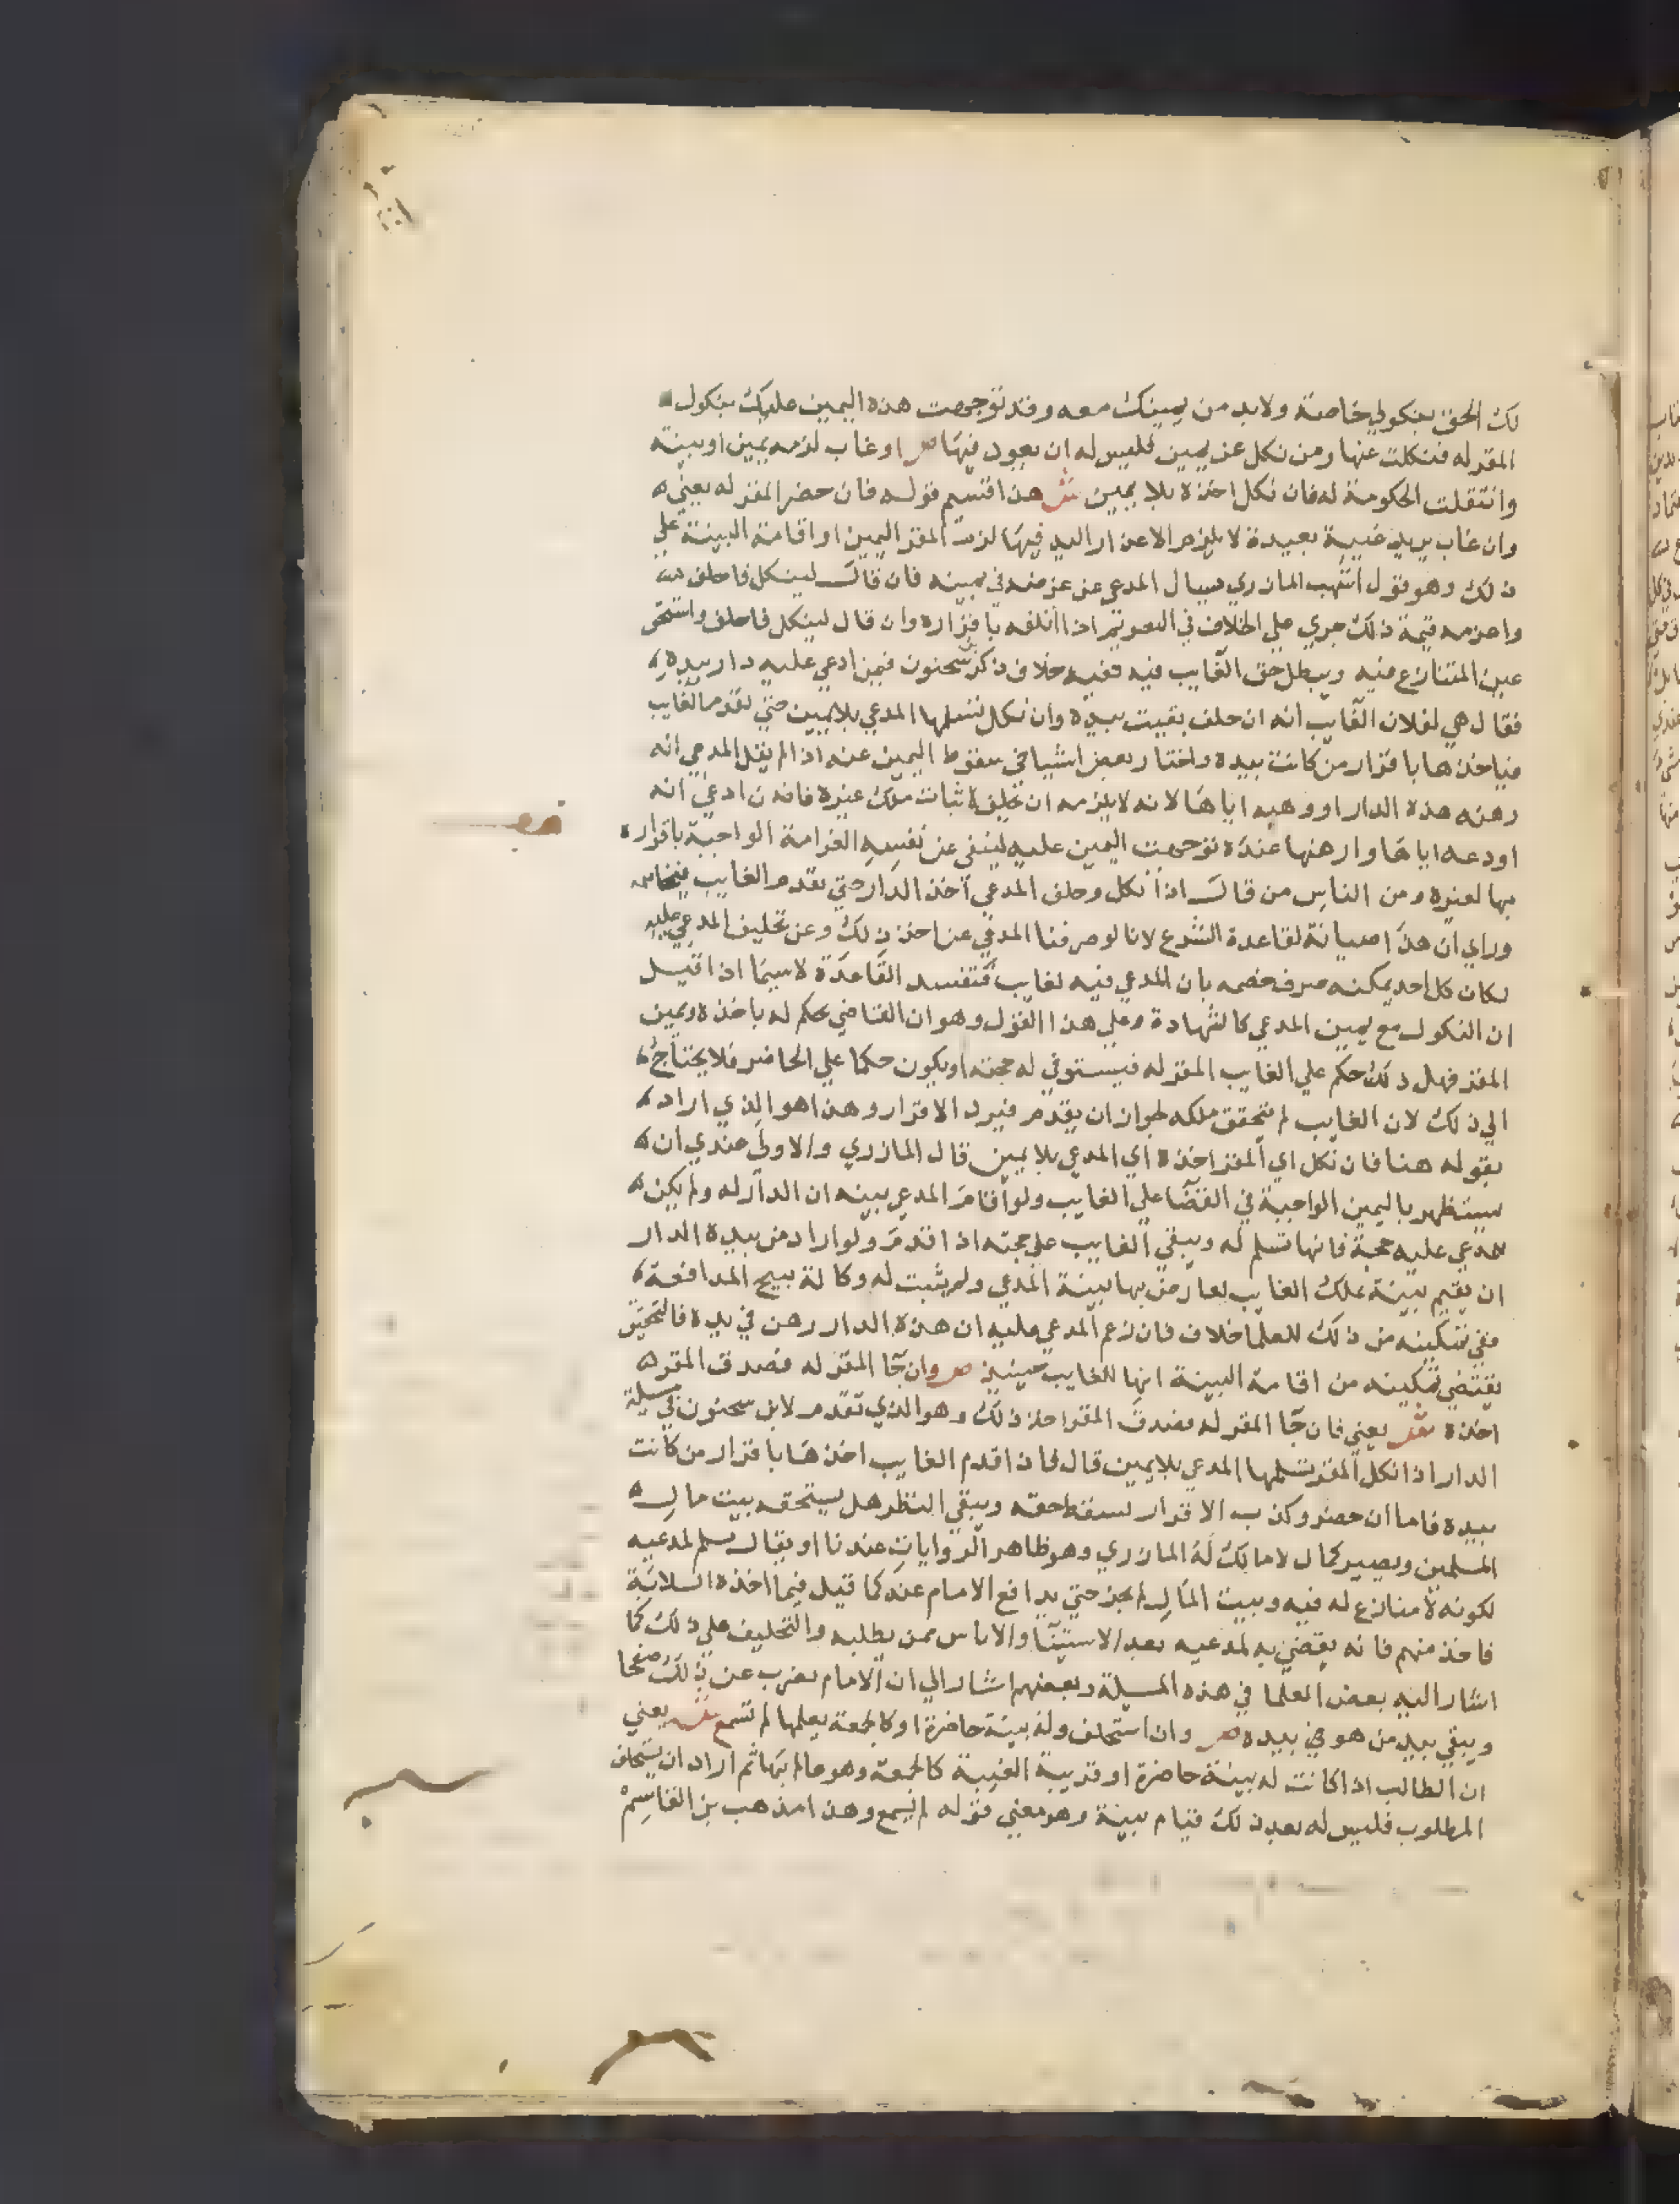 لك الحق بنكولي خاصة ولابد من يمينك معه وقد توجهت هذه اليمين عليك بنكول
المقر له فنكلت عنها ومن نكل عن يمين فليس له ان يعود فيها ص او غاب لزمه يمين او بينة
وانتقلت الحكومة له فان نكل اخذه بلا يمين ش هذا قسيم قوله فان حضر المقر له يعني
وان غاب يريد غيبة بعيدة لا يلزم الاعذار اليه فيها لزمت المقر اليمين او اقامة البينة علي
ذلك وهو قول اشهب المازري سيال المدعي عن غرضه في يمينه فان قال لينكل فاحلف
واغرمه قيمة ذلك جري علي الخلاف في الغريم اذا اتلفه باقراره وان قال لينكل فاحلف واستحق
عين المتنازع فيه ويبطل حق الغايب فيه ففيه خلاف ذكر بن سحنون فيمن ادعي عليه دار بيده
فقال هي لفلان الغايب انه ان حلف بقيت بيده وان نكل تسلمها المدعي بلا يمين حتي يقدم الغايب
فياخذها باقرار من كانت بيده واختار بعض اشياخي سقوط اليمين عنه اذا لم يقل المدعي انه
رهنه هذه الدار او وهبه اياها لانه لا يلزمه ان يحلف لاثبات ملك غيره فاما ان ادعي انه
اودعه اياها وارهنها عنده توجهت اليمين عليه لينفي عن نفسه الغرامة الواجبة باقراره
بها لغيره ومن الناس من قال اذا نكل وحلف المدعي اخذ الدار حتي يقدم الغايب فيخاصمه
وراي ان هذا صيانة لقاعدة الشرع لانا لو صرفنا المدعي عن اخذ ذلك وعن تحليف المدعي عليه
لكان كل احد يمكنه صرف خصمه بان المدعي فيه لغايب فتفسد القاعدة لا سيما اذا قيل
ان النكول مع يمين المدعي كالشهادة وعلي هذا القول وهو ان القاضي يحكم له باخذه ويمين
المقر فهل ذلك حكم علي الغايب المقر له فيستوفي له حجته او يكون حكما علي الحاضر فلا يحتاج
الي ذلك لان الغايب لم يتحقق ملكه لجواز ان يقدم فيرد الاقرار وهذا هو الذي اراد
بقوله هنا فان نكل اي المقر اخذه اي المدعي بلا يمين قال المازري والاولي عندي ان
يستظهر باليمين الواجبة في القضا علي الغايب ولو اقام المدعي بينه ان الدار له ولم يكن
للمدعي عليه حجة فانها تسلم له ويبقي الغايب علي حجته اذا قدم ولو اراد من بيده الدار
ان يقيم بينة بملك الغايب ليعارض بها بينة المدعي ولم يثبت له وكالة تبيح المدافعة
ففي تمكينه من ذلك للعلما خلاف فان زعم المدعي عليه ان هذه الدار رهن في يده فالتحقيق
يقتضي تمكينه من اقامة البينة انها للغايب حينيذ ص وان جا المقر له فصدق المقر
اخذه ش يعني فان جا المقر له فصدق المقر اخذ ذلك وهو الذي تقدم لابن سحنون في مسيلة
الدار اذا نكل المقر تسلمها المدعي بلا يمين قال فاذا قدم الغايب اخذها باقرار من كانت
بيده فاما ان حضر وكذب الاقرار لسقط حقه ويبقي النظر هل يستحقه بيت مال
المسلمين ويصير كمال لا مالك له المازري وهو ظاهر الروايات عندنا او يقال يسلم لمدعيه
لكونه لا منازع له فيه وبيت المال لم يحز حتي يدافع الامام عنه كما قيل فيما اخذه السلابة
فاخذ منهم فانه يقضي به لمدعيه بعد الاستينا والاياس ممن يطلبه والتحليف علي ذلك كما
اشار اليه بعض العلما في هذه المسيلة وبعضهم اشار الي ان الامام يضرب عن ذلك صفحا
ويبقي بيد من هو في يده ص وان استحلف وله بينة حاضرة او كالجمعة يعلمها لم تسمع ش يعني
ان الطالب اذا كانت له بينة حاضرة او قريبة الغيبة كالجمعة وهو عالم بها ثم اراد ان يستحلف
المطلوب فليس له بعد ذلك قيام ببينة وهو معني قوله لم تسمع وهذا مذهب بن القاسم